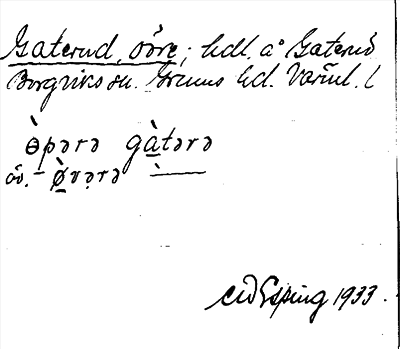 Gaterud, övre; hdl. å Gaterud
Borgviks sn. Grums hd. Värml. l
ɵ̀pərə gàtərə
äv. - ø̀vərə ——
1933.